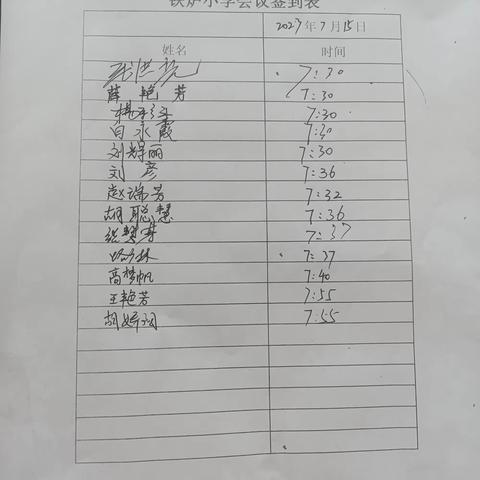 铁炉小学会议签到表
2023年7月15日
姓名 时间
张洪亮 7:30
薛艳芳 7:30
7:30
白永霞 7:30
刘辉丽 7:30
刘彦 7:36
赵瑞芳 7:32
胡聪慧 7:36
7:37
7:37
高梦帆 7:40
王艳芳 7:55
胡 7:55